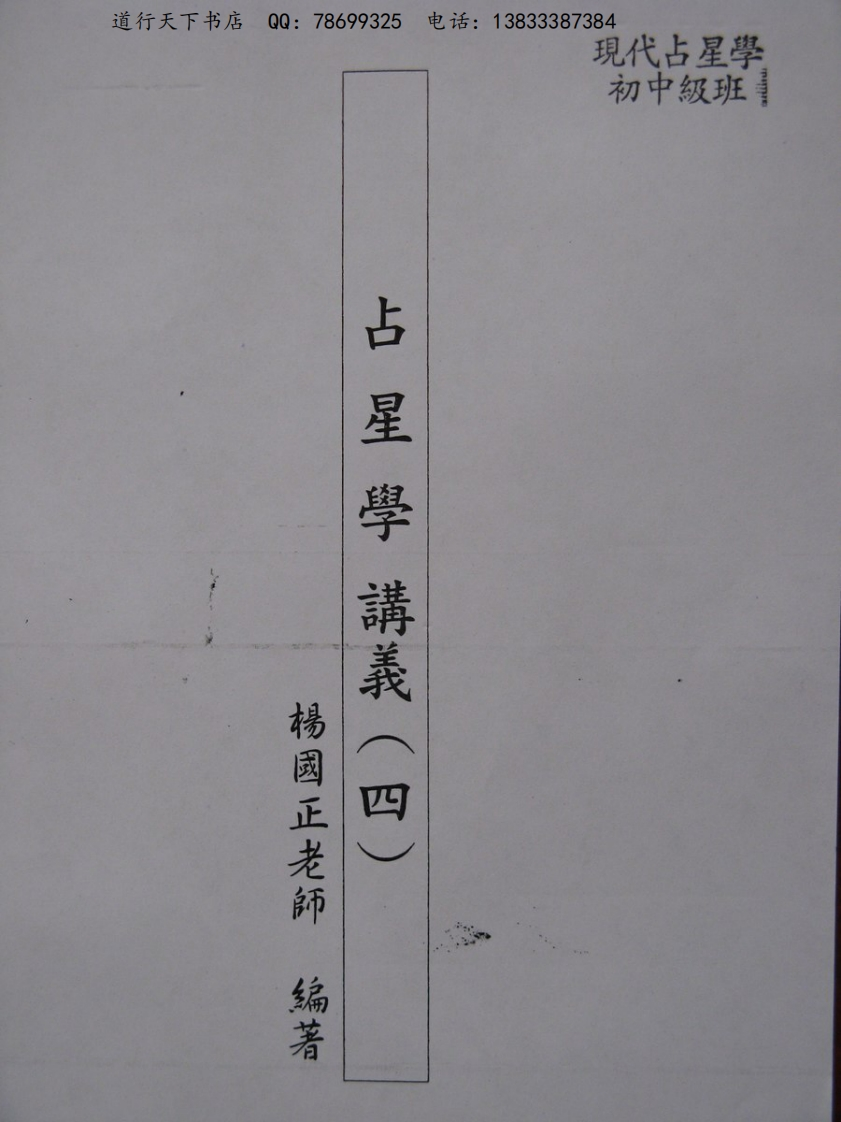 道行天下书店 QQ：78699325 电话：13833387384
現代占星學
初中級班
占星學講義（四）
楊國正老師 編著